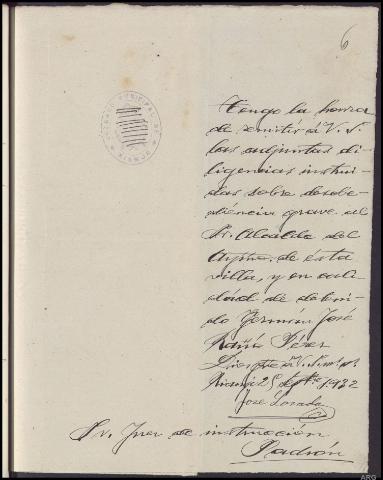 6
JUZGADO MUNICIPAL DE
RIANJO
Tengo la honra
de remitir á V. S.
las adjuntas di-
ligencias instrui-
das sobre desobe-
diencia grave al
Sr. Alcalde del
Aynto. de ésta
villa, y en cali-
dad de deteni-
do Germán José
Pérez
Dios gue á V. S. m. a.
Rianjo 25 Septbre 1932
José Losada
Sr. Juez de instrucción
Padrón
ARG